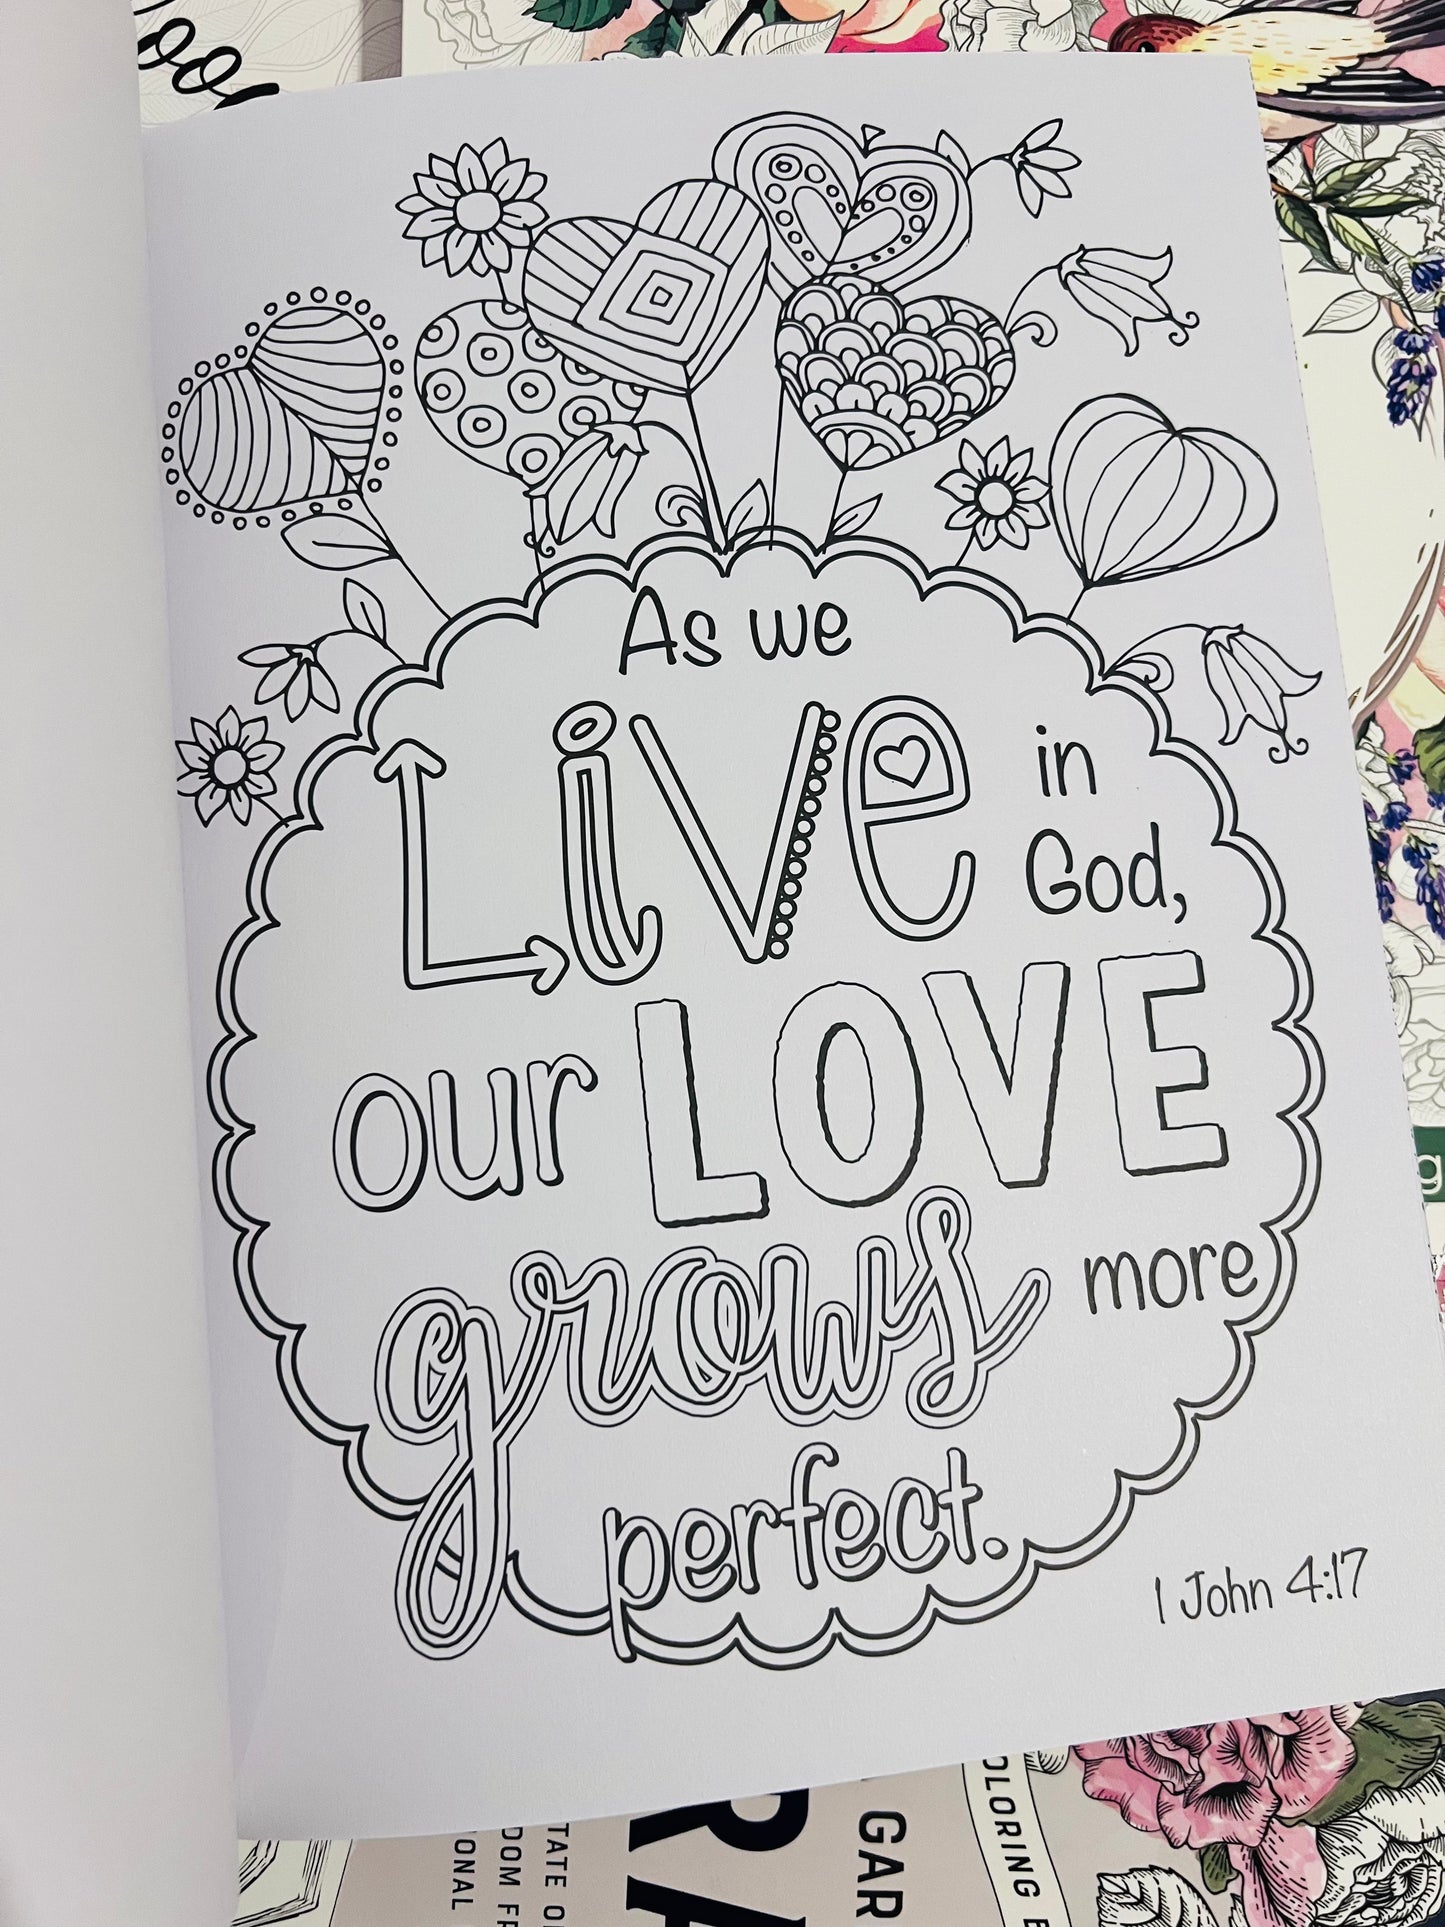 As we
Live in
God,
our LOVE
grows more
perfect.
1 John 4:17
OLORING B
GAR
RA
TATE O
DOM F
IONAL
g